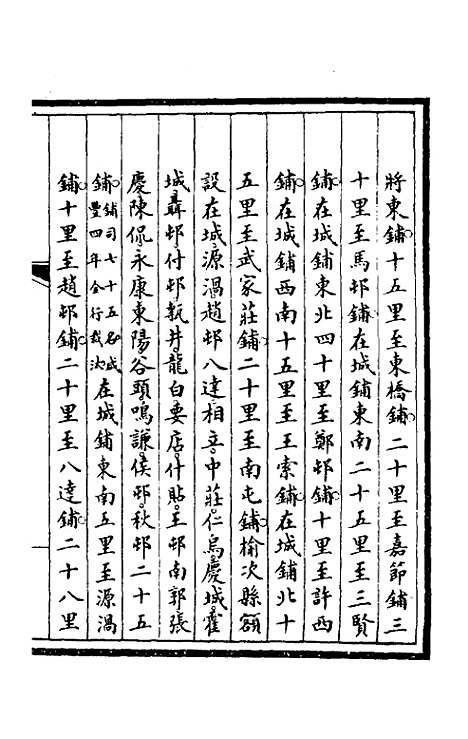 將東鋪十五里至東橋鋪二十里至嘉節鋪三
十里至馬邨鋪在城鋪東南二十五里至三賢
鋪在城鋪東北四十里至鄭邨鋪十里至許西
鋪在城鋪西南十五里至王索鋪在城鋪北十
五里至武家莊鋪二十里至南屯鋪榆次縣額
設在城源渦趙邨八達相立中莊仁烏慶城霍
城聶邨付邨執井龍白要店什貼王邨南郭張
慶陳侃永康東陽谷頭鳴謙侯邨秋邨二十五
鋪鋪司七十五名咸
豐四年全行裁汰在城鋪東南五里至源渦
鋪十里至趙邨鋪二十里至八達鋪二十八里